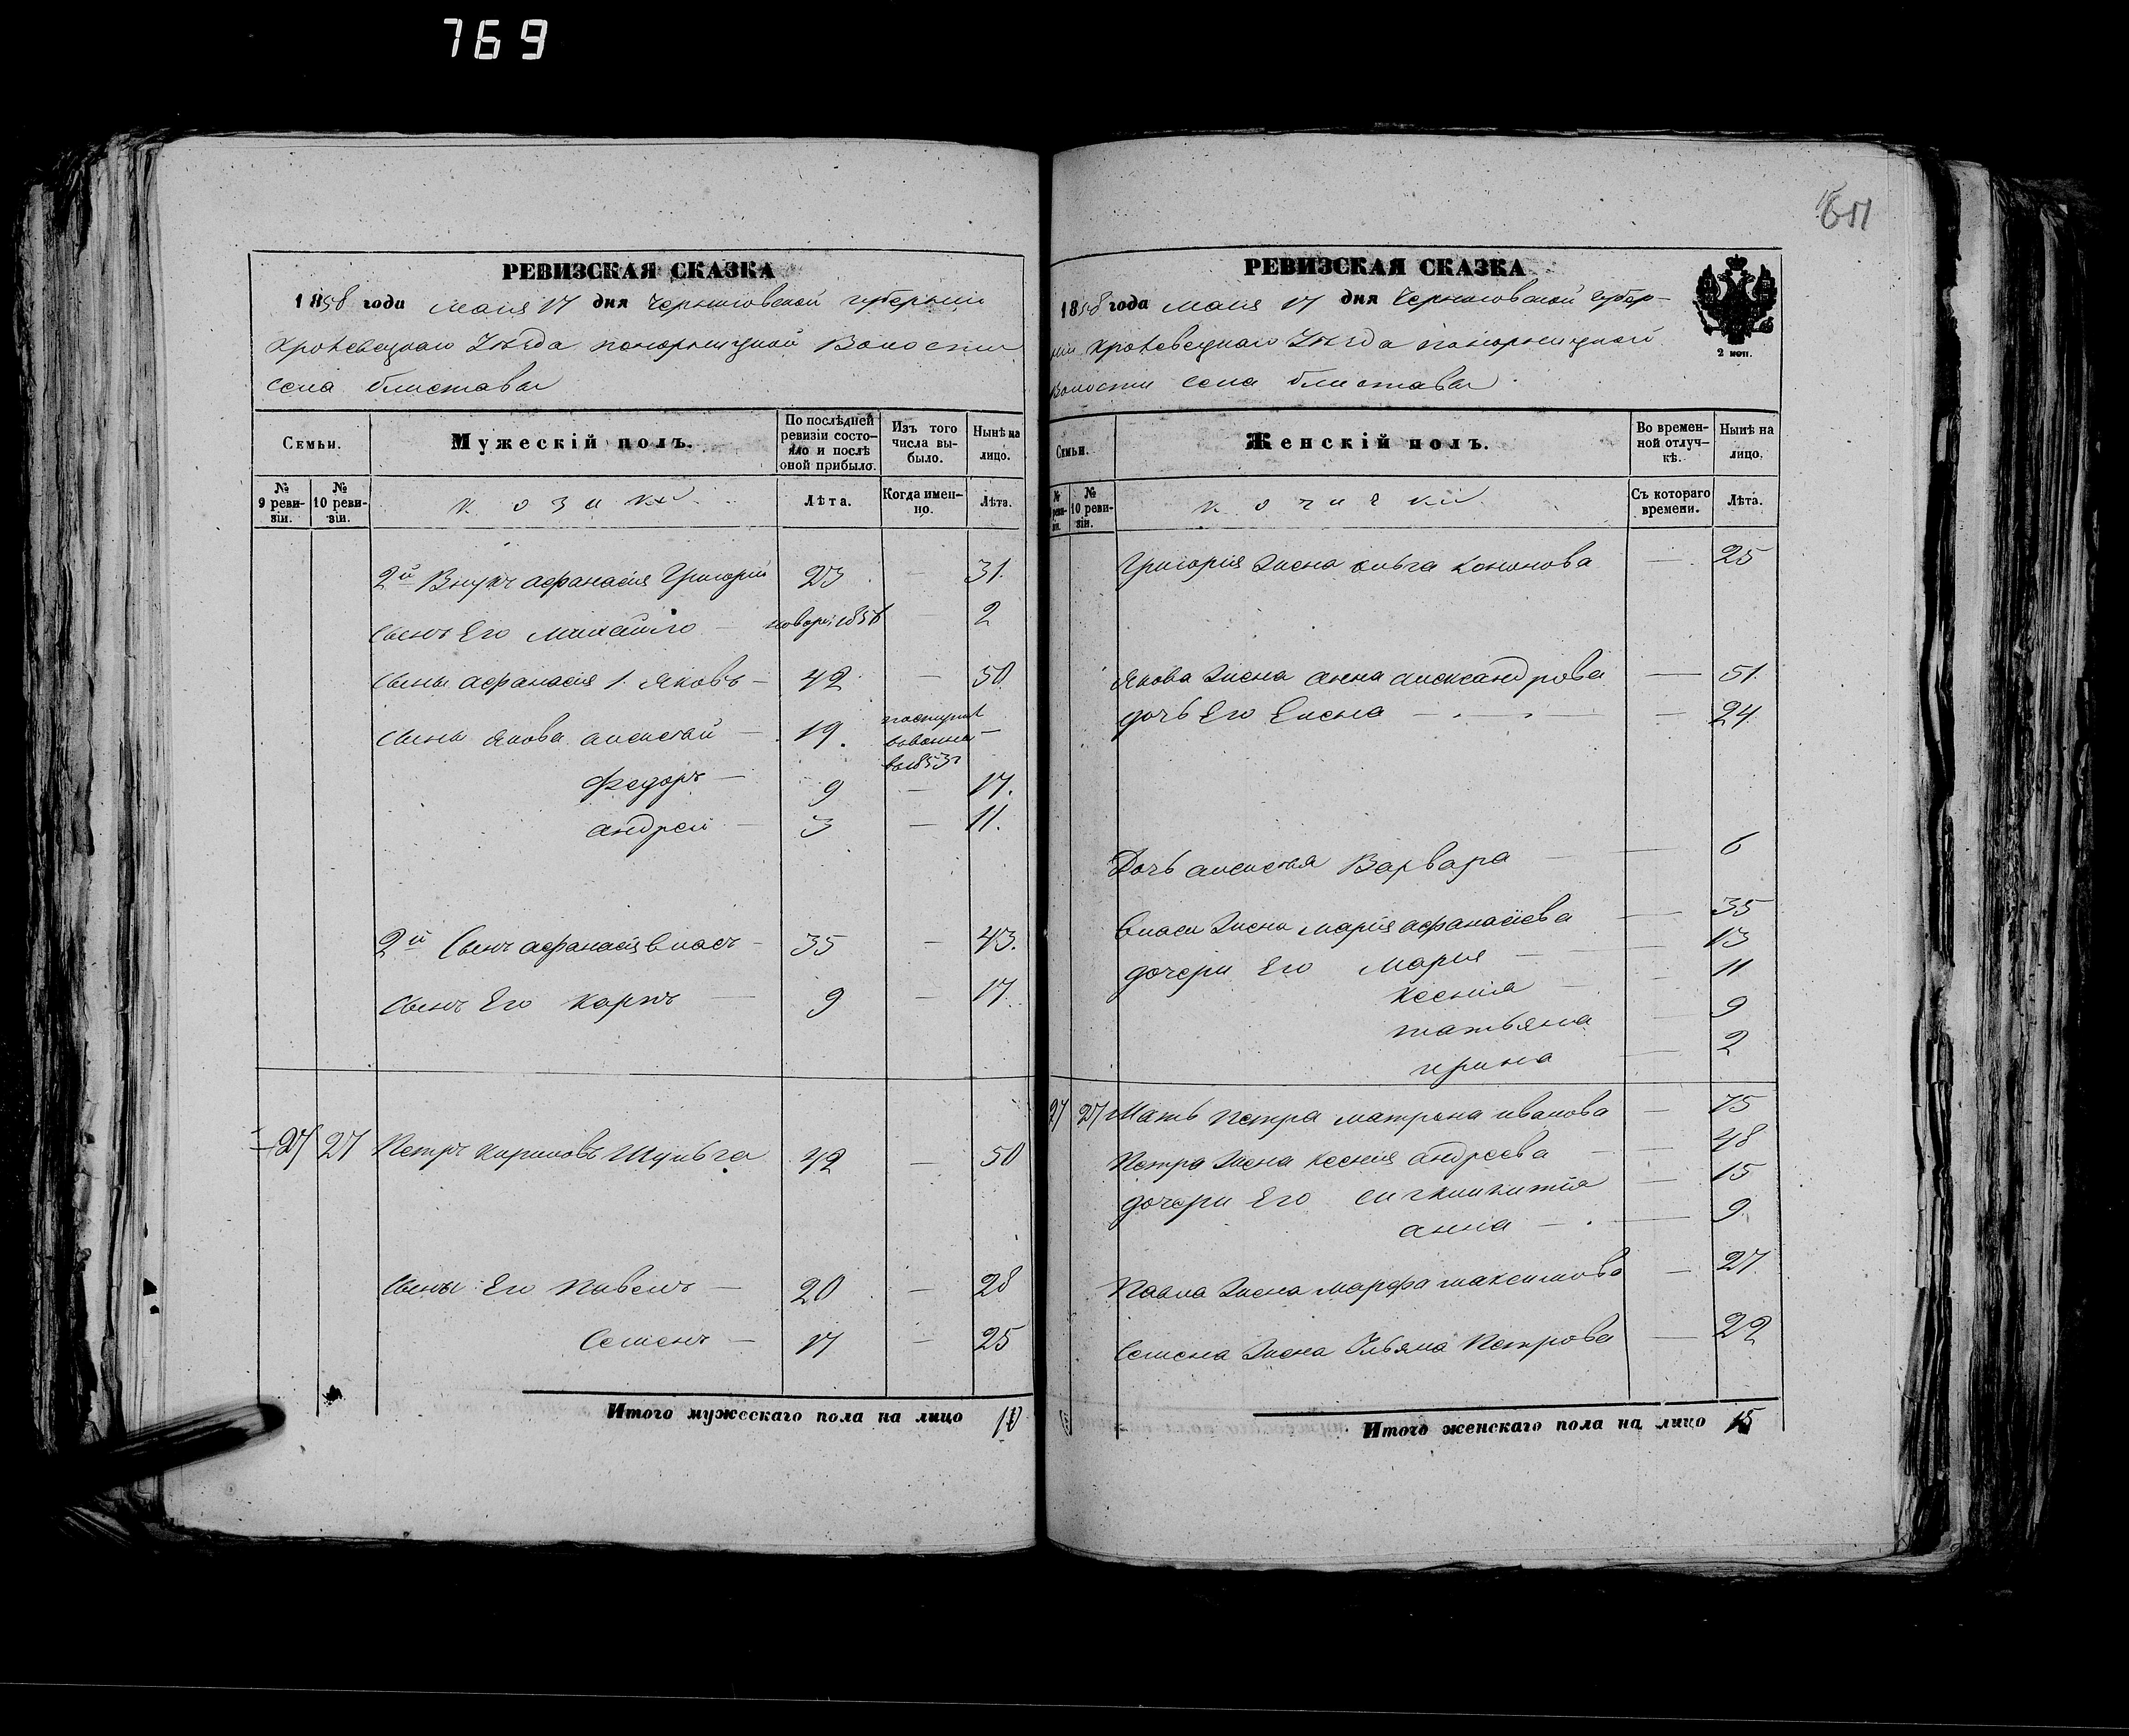 769
651
РЕВИЗСКАЯ СКАЗКА
1858 года Маия 17 дня Черниговской губерніи
Кролевецкаго Уѣзда Понорницкой Волости
Села Блистовы
Семьи.
Мужескій полъ.
По послѣдней ревизіи состояло и послѣ оной прибыло.
Изъ того числа выбыло.
Нынѣ на лицо.
№ 9 ревизіи.
№ 10 ревизіи.
Козаки
Лѣта.
Когда именно.
Лѣта.
2й Внукъ Афанасія Григорій 23 — 31.
Сынъ Его Михайло — новорж 1856 — 2
Сыны Афанасія 1. Яковъ — 42 — 50
Сыны Якова Алексѣй — 19. —
Федоръ — 9 — 17.
Андрей — 3 — 11.
2й Сынъ Афанасія Власъ — 35 — 43.
Сынъ Его Карпъ — 9 — 17.
27 27 Петръ Кириловъ Шульга 42 — 50
Сыны Его Павелъ — 20 — 28
Семенъ — 17 — 25
Итого мужескаго пола на лицо 10
РЕВИЗСКАЯ СКАЗКА
1858 года Маия 17 дня Черниговской губер-
ніи Кролевецкаго Уѣзда Понорницкой
Волости Села Блистовы
2 коп.
Семьи.
Женскій полъ.
Во временной отлучкѣ.
Нынѣ на лицо.
№ 10 ревизіи.
Козачки
Съ котораго времени.
Лѣта.
Григорія Жена Ольга Кононова — 25
Якова Жена Анна Александрова — 51.
дочь Его Елена — 24.
Дочь Алексѣя Варвара — 6
Власа Жена Марія Афанасіева — 35
дочери Его Марья — 13
Ксенія — 11
татьяна — 9
ирина — 2
27 27 Мать Петра Матрона Иванова — 75
Петра Жена Ксенія Андреева — 48
дочери Его — 15
Анна — 9
Павла Жена Марфа Максимова — 27.
Семена Жена Ульяна Петрова — 22
Итого женскаго пола на лицо 15